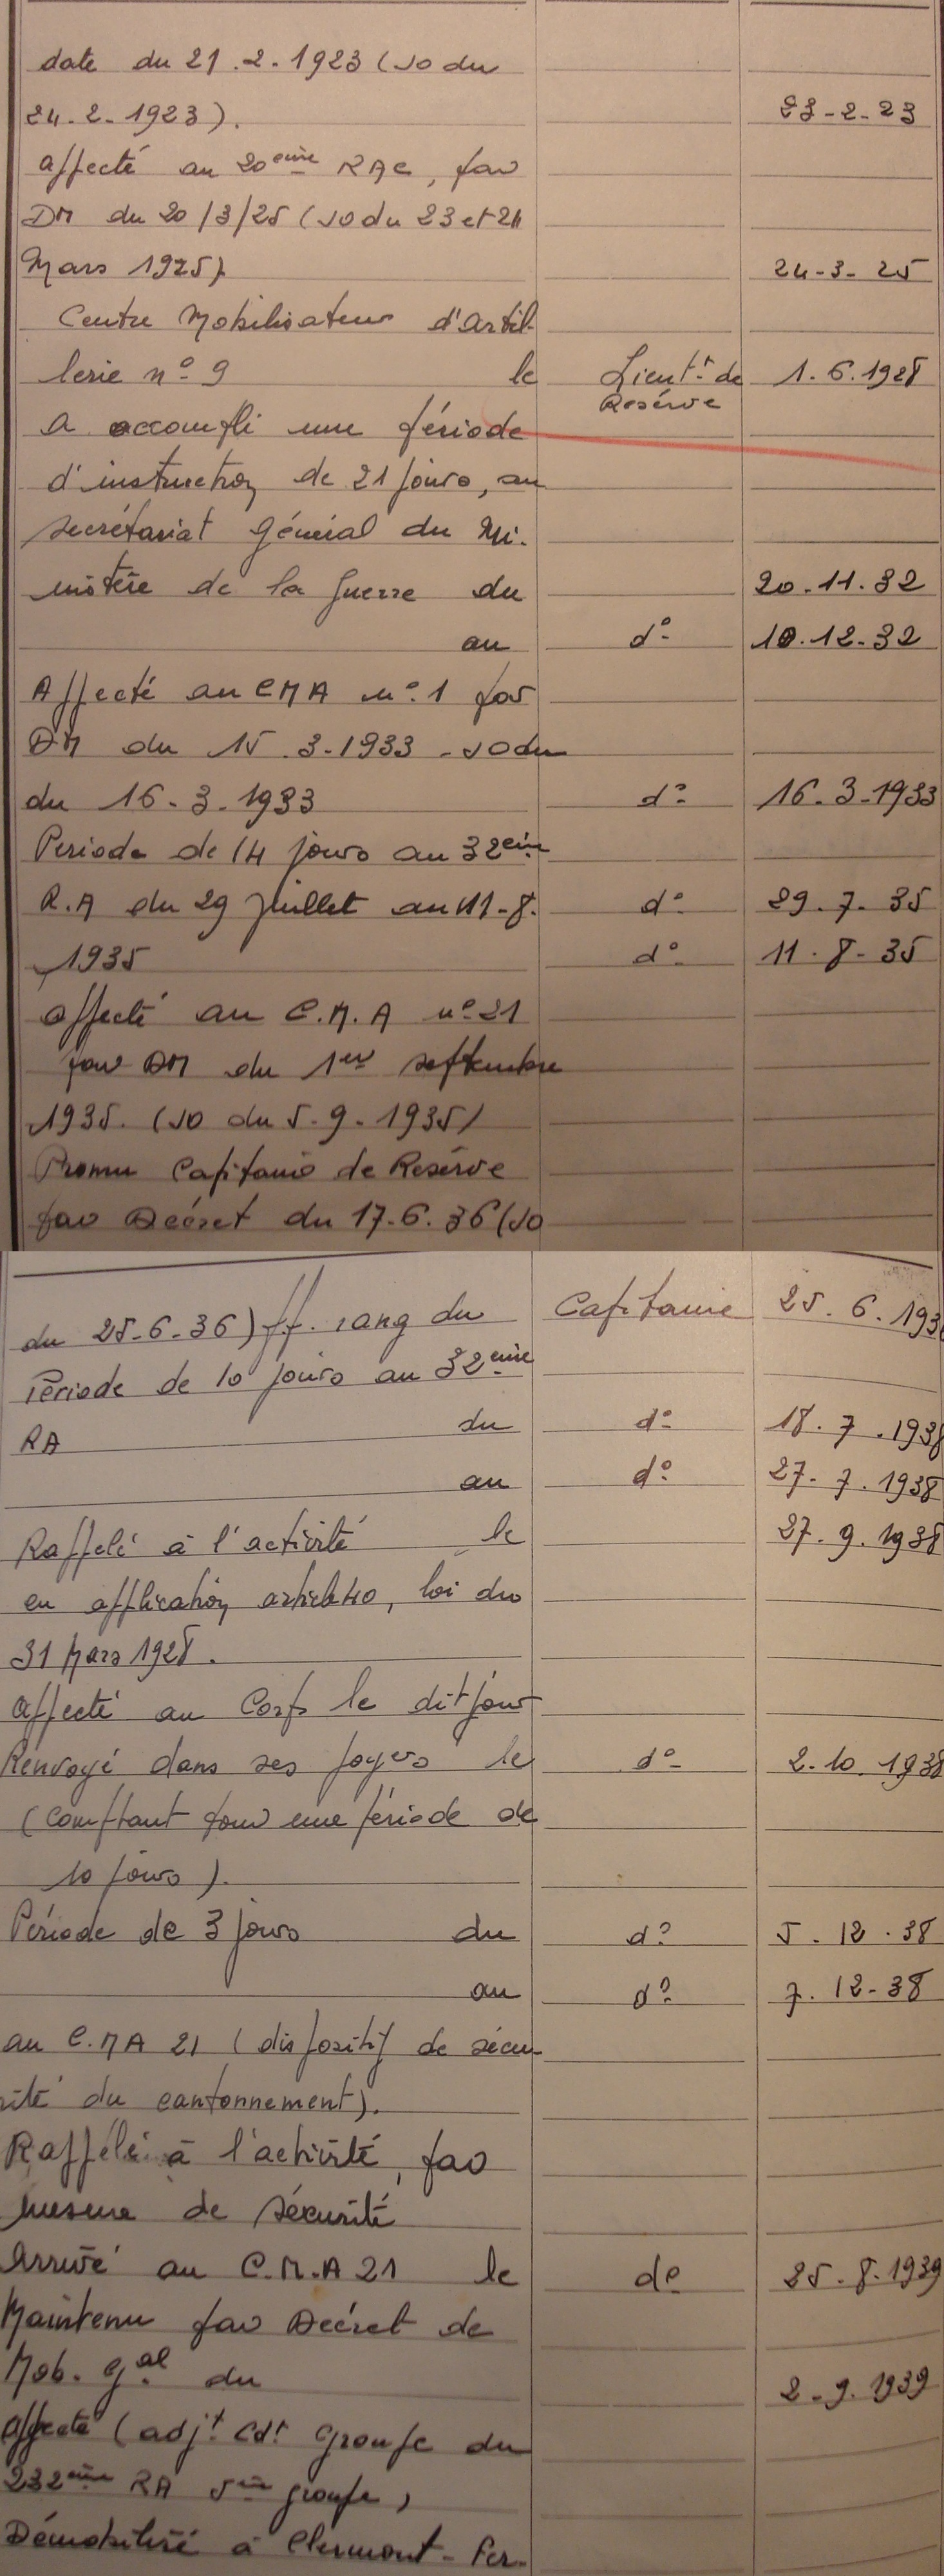 date du 21.2.1923 (JO du
24-2-1923). 23-2-23
affecté au 20eme RAC, par
DM du 20/3/25 (JO du 23 et 24
Mars 1925) 24-3-25
Centre Mobilisateur d'Artil-
lerie n° 9 le Lieutt de Resérve 1.6.1928
a accompli une période
d'instruction de 21 jours, au
secrétariat général du Mi-
nistère de la guerre du 20.11.32
au d° 10.12-32
Affecté au CMA n° 1 par
DM du 15.3-1933 - JO du
du 16-3-1933 d° 16-3-1933
Periode de 14 jours au 32eme
R.A du 29 Juillet au 11-8- d° 29.7.35
1935 d° 11.8-35
affecté au C.M.A n° 21
par DM du 1er septembre
1935. (JO du 5.9.1935)
Promu Capitaine de Resérve
par Décret du 17.6.36 (JO
du 25-6-36) p.p. rang du Capitaine 25.6.193
Periode de 10 jours au 32eme
RA du d° 18.7.1938
au d° 27.7.1938
Rappelé à l'activité le 27.9.1938
en application article 40, loi du
31 Mars 1928.
affecté au Corps le dit jour
Renvoyé dans ses foyers le d° 2.10.1938
(comptant pour une période de
10 jours).
Période de 3 jours du d° 5.12.38
au d° 7.12-38
au C.MA 21 (dispositif de sécu-
rité du cantonnement).
Rappelé à l'activité, par
mesure de sécurité
Arrivé au C.M.A 21 le d° 25.8.1939
Maintenu par Décret de
Mob. Gale du 2.9.1939
affecté (adjt Cdt Groupe du
232eme RA 5me groupe)
Démobilisé à Clermont-Fer-